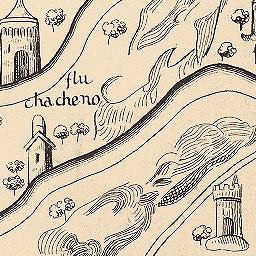 flu
chacheno